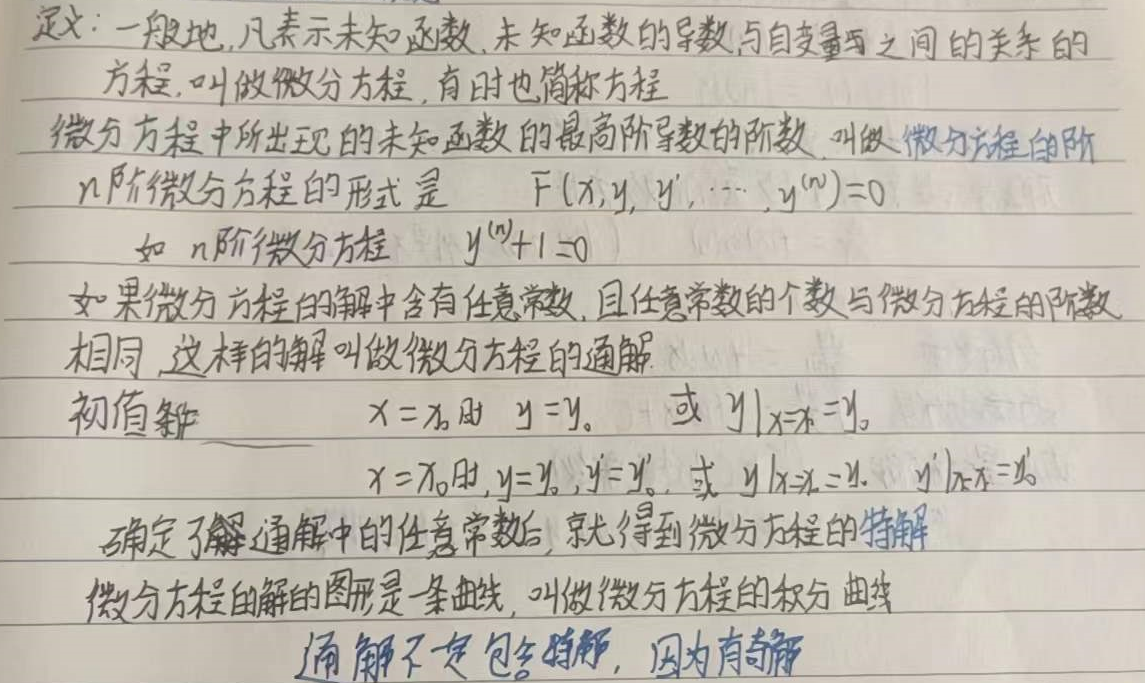 定义：一般地，凡表示未知函数、未知函数的导数与自变量之间的关系的
方程，叫做微分方程，有时也简称方程
微分方程中所出现的未知函数的最高阶导数的阶数，叫做微分方程的阶
n阶微分方程的形式是 F(x,y,y',…,y⁽ⁿ⁾)=0
如 n阶微分方程 y⁽ⁿ⁾+1=0
如果微分方程的解中含有任意常数，且任意常数的个数与微分方程的阶数
相同，这样的解叫做微分方程的通解
初值条件 x=x₀时 y=y₀ 或 y|x=x₀=y₀
x=x₀时，y=y₀，y'=y'₀，或 y|x=x₀=y₀ y'|x=x₀=y'₀
确定了通解中的任意常数后，就得到微分方程的特解
微分方程的解的图形是一条曲线，叫做微分方程的积分曲线
通解不一定包含特解，因为有奇解